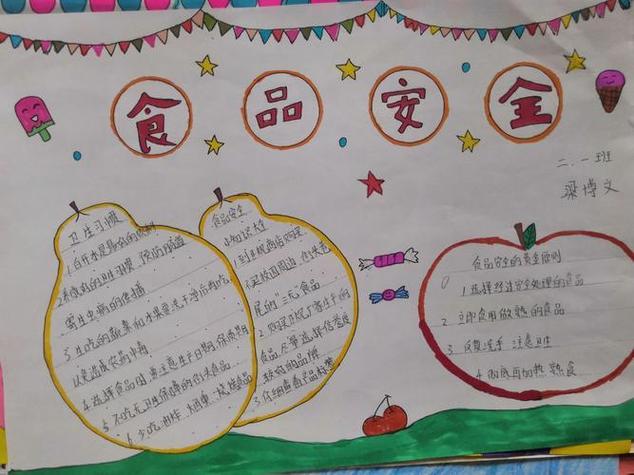 食品安全
二.一班
梁博文
卫生习惯
1.白开水是最好的饮料
2.养成好的卫生习惯 预防肠道
寄生虫病的传播
3.生吃的蔬菜和水果要洗干净后再吃
以免造成农药中毒
4.选择食品时要注意生产日期、保质期
5.不吃无卫生保障的街头食品
6.少吃油炸、烟熏、烧烤食品
食品安全
小知识大
1.到正规商店购买
不买校园周边、街头巷
尾的"三无"食品
2.购买正规厂家生产的
食品尽量选择信誉度
较好的品牌
3.仔细查看产品标签
食品安全的黄金原则
1.选择经过安全处理的食品
2.立即食用做熟的食品
3.反复洗手 注意卫生
4.彻底再加热熟食